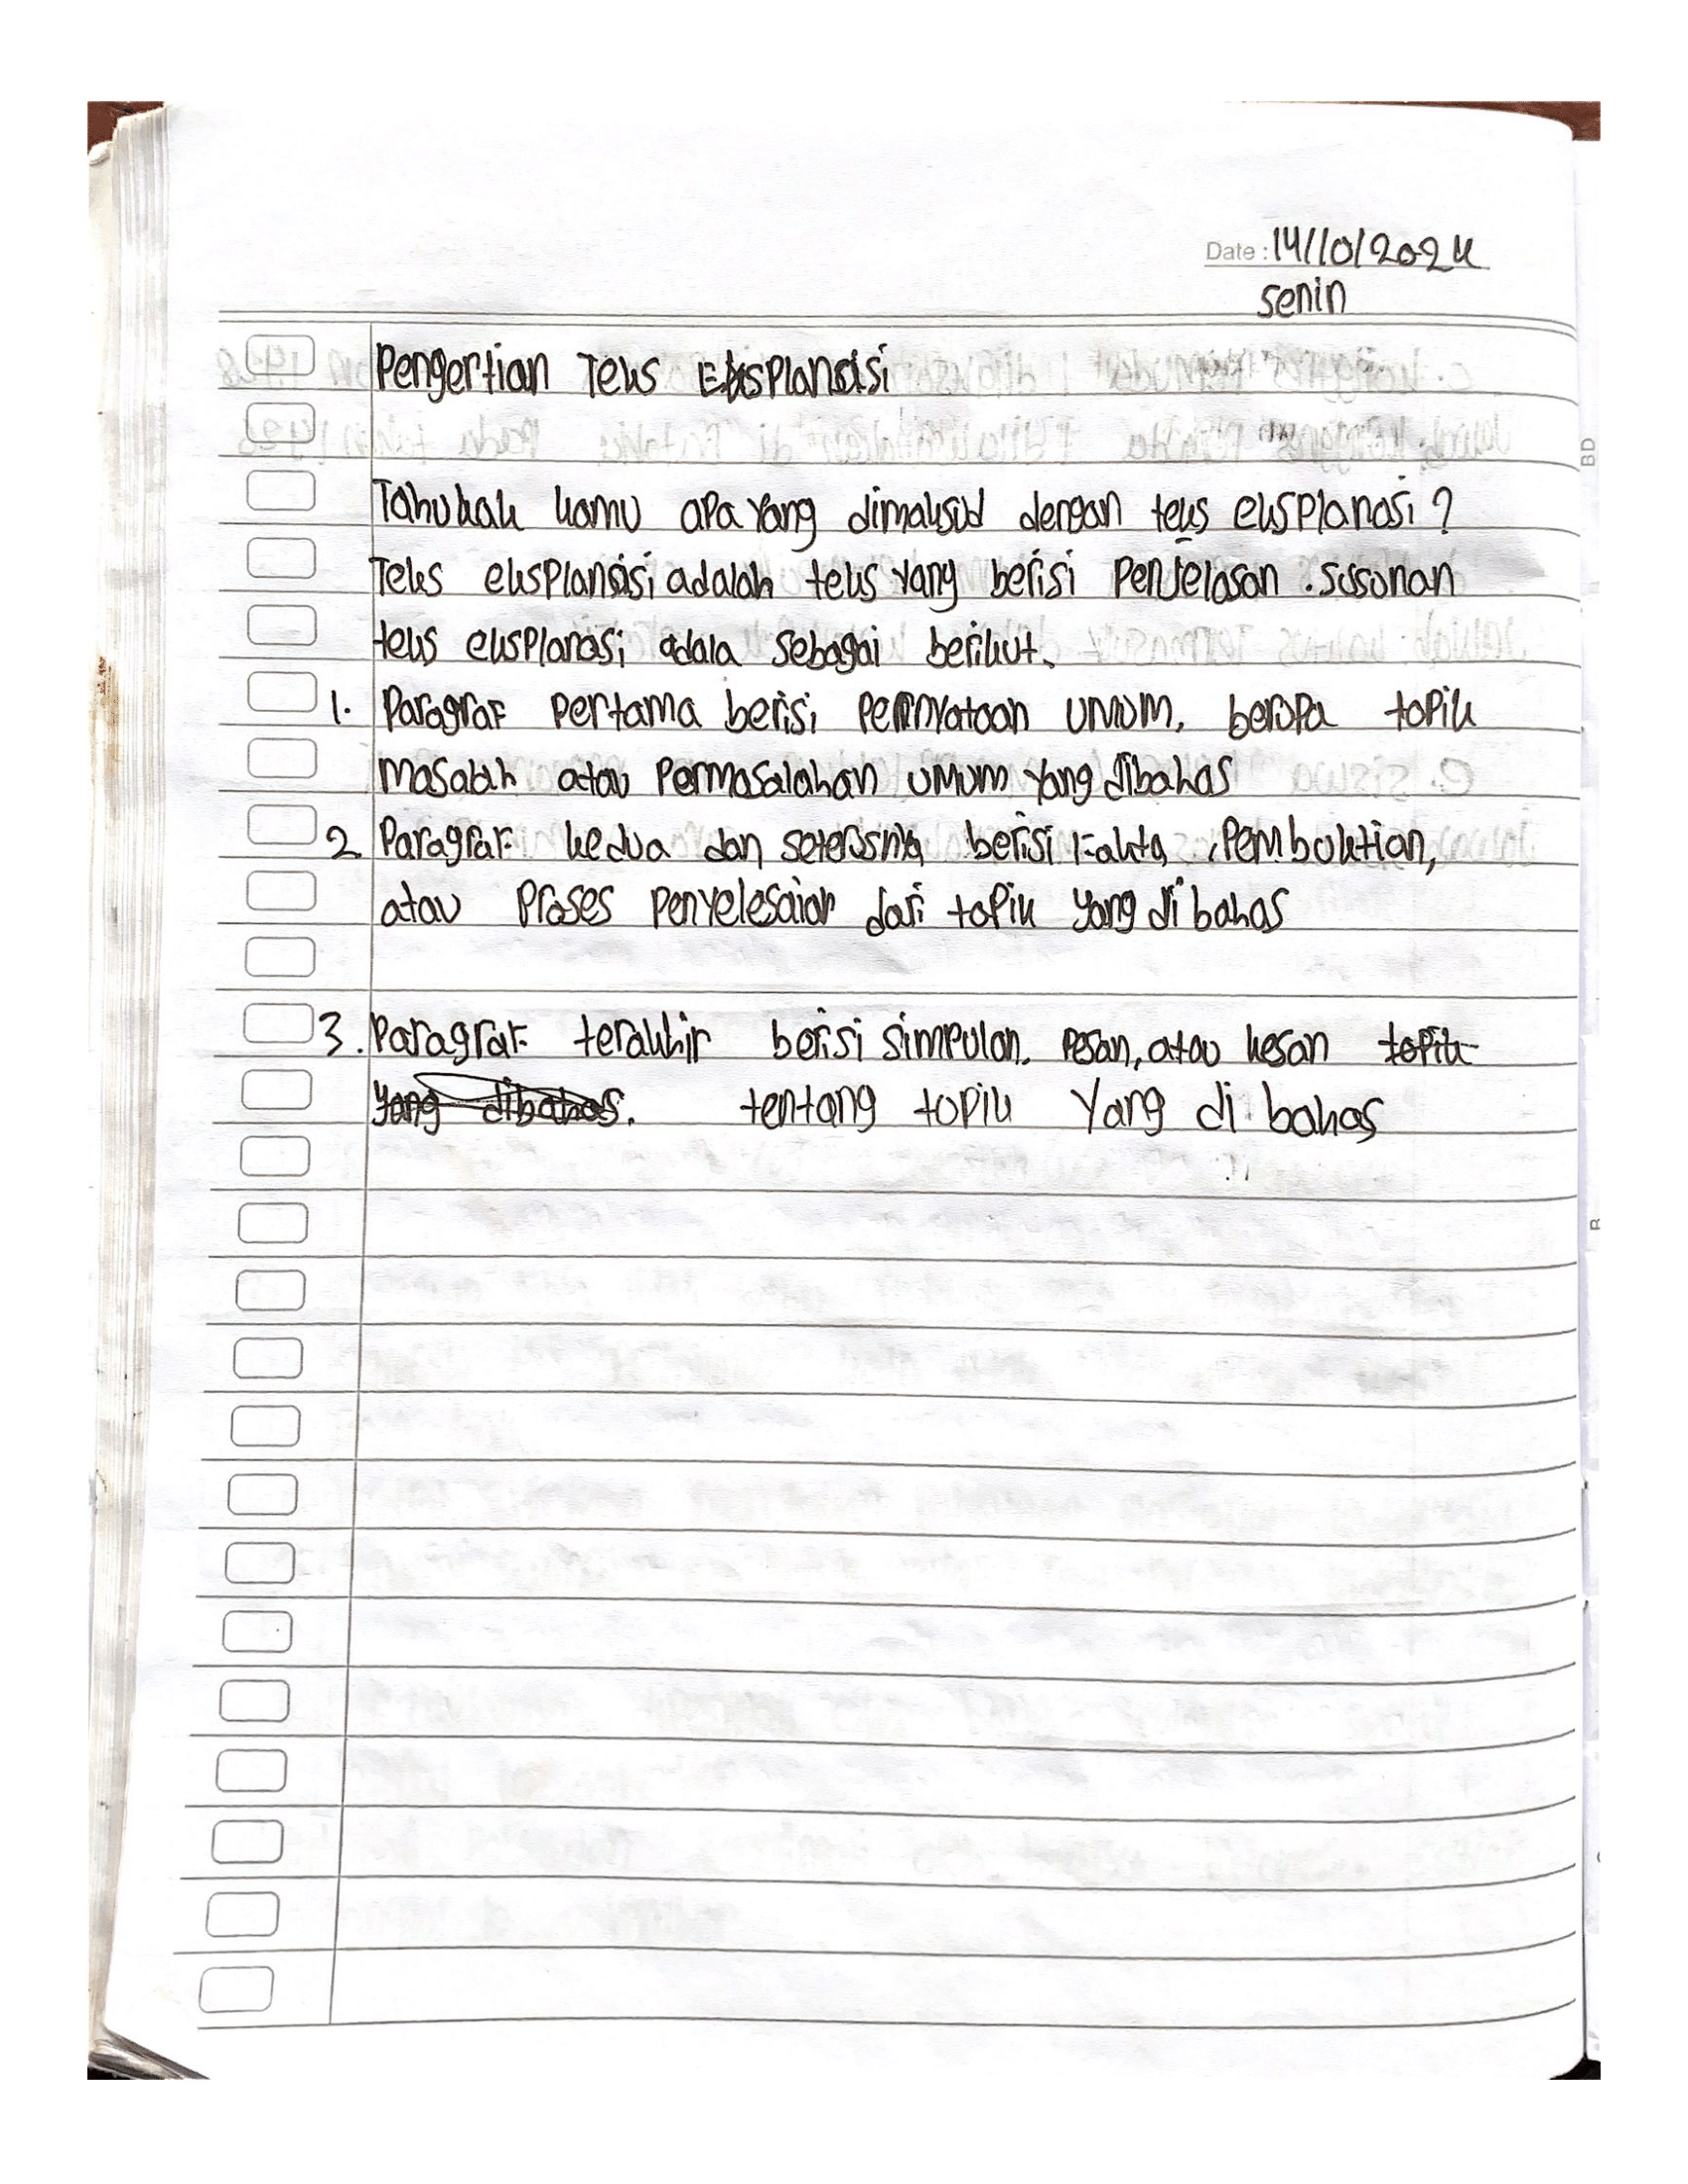 Date : 14/10/2024
Senin
Pengertian Teks Eksplansisi
Tahukah kamu apa yang dimaksud dengan teks eksplanasi ?
Teks eksplansisi adalah teks yang berisi penjelasan . susunan
teks eksplanasi adala sebagai berikut.
1. Paragraf pertama berisi pernyataan umum, berupa topik
masalah atau permasalahan umum yang dibahas
2. Paragraf kedua dan seterusnya berisi fakta , pembuktian,
atau proses penyelesaian dari topik yang di bahas
3. Paragraf terakhir berisi simpulan. pesan, atau kesan topik
yang dibahas. tentang topik yang di bahas
BD